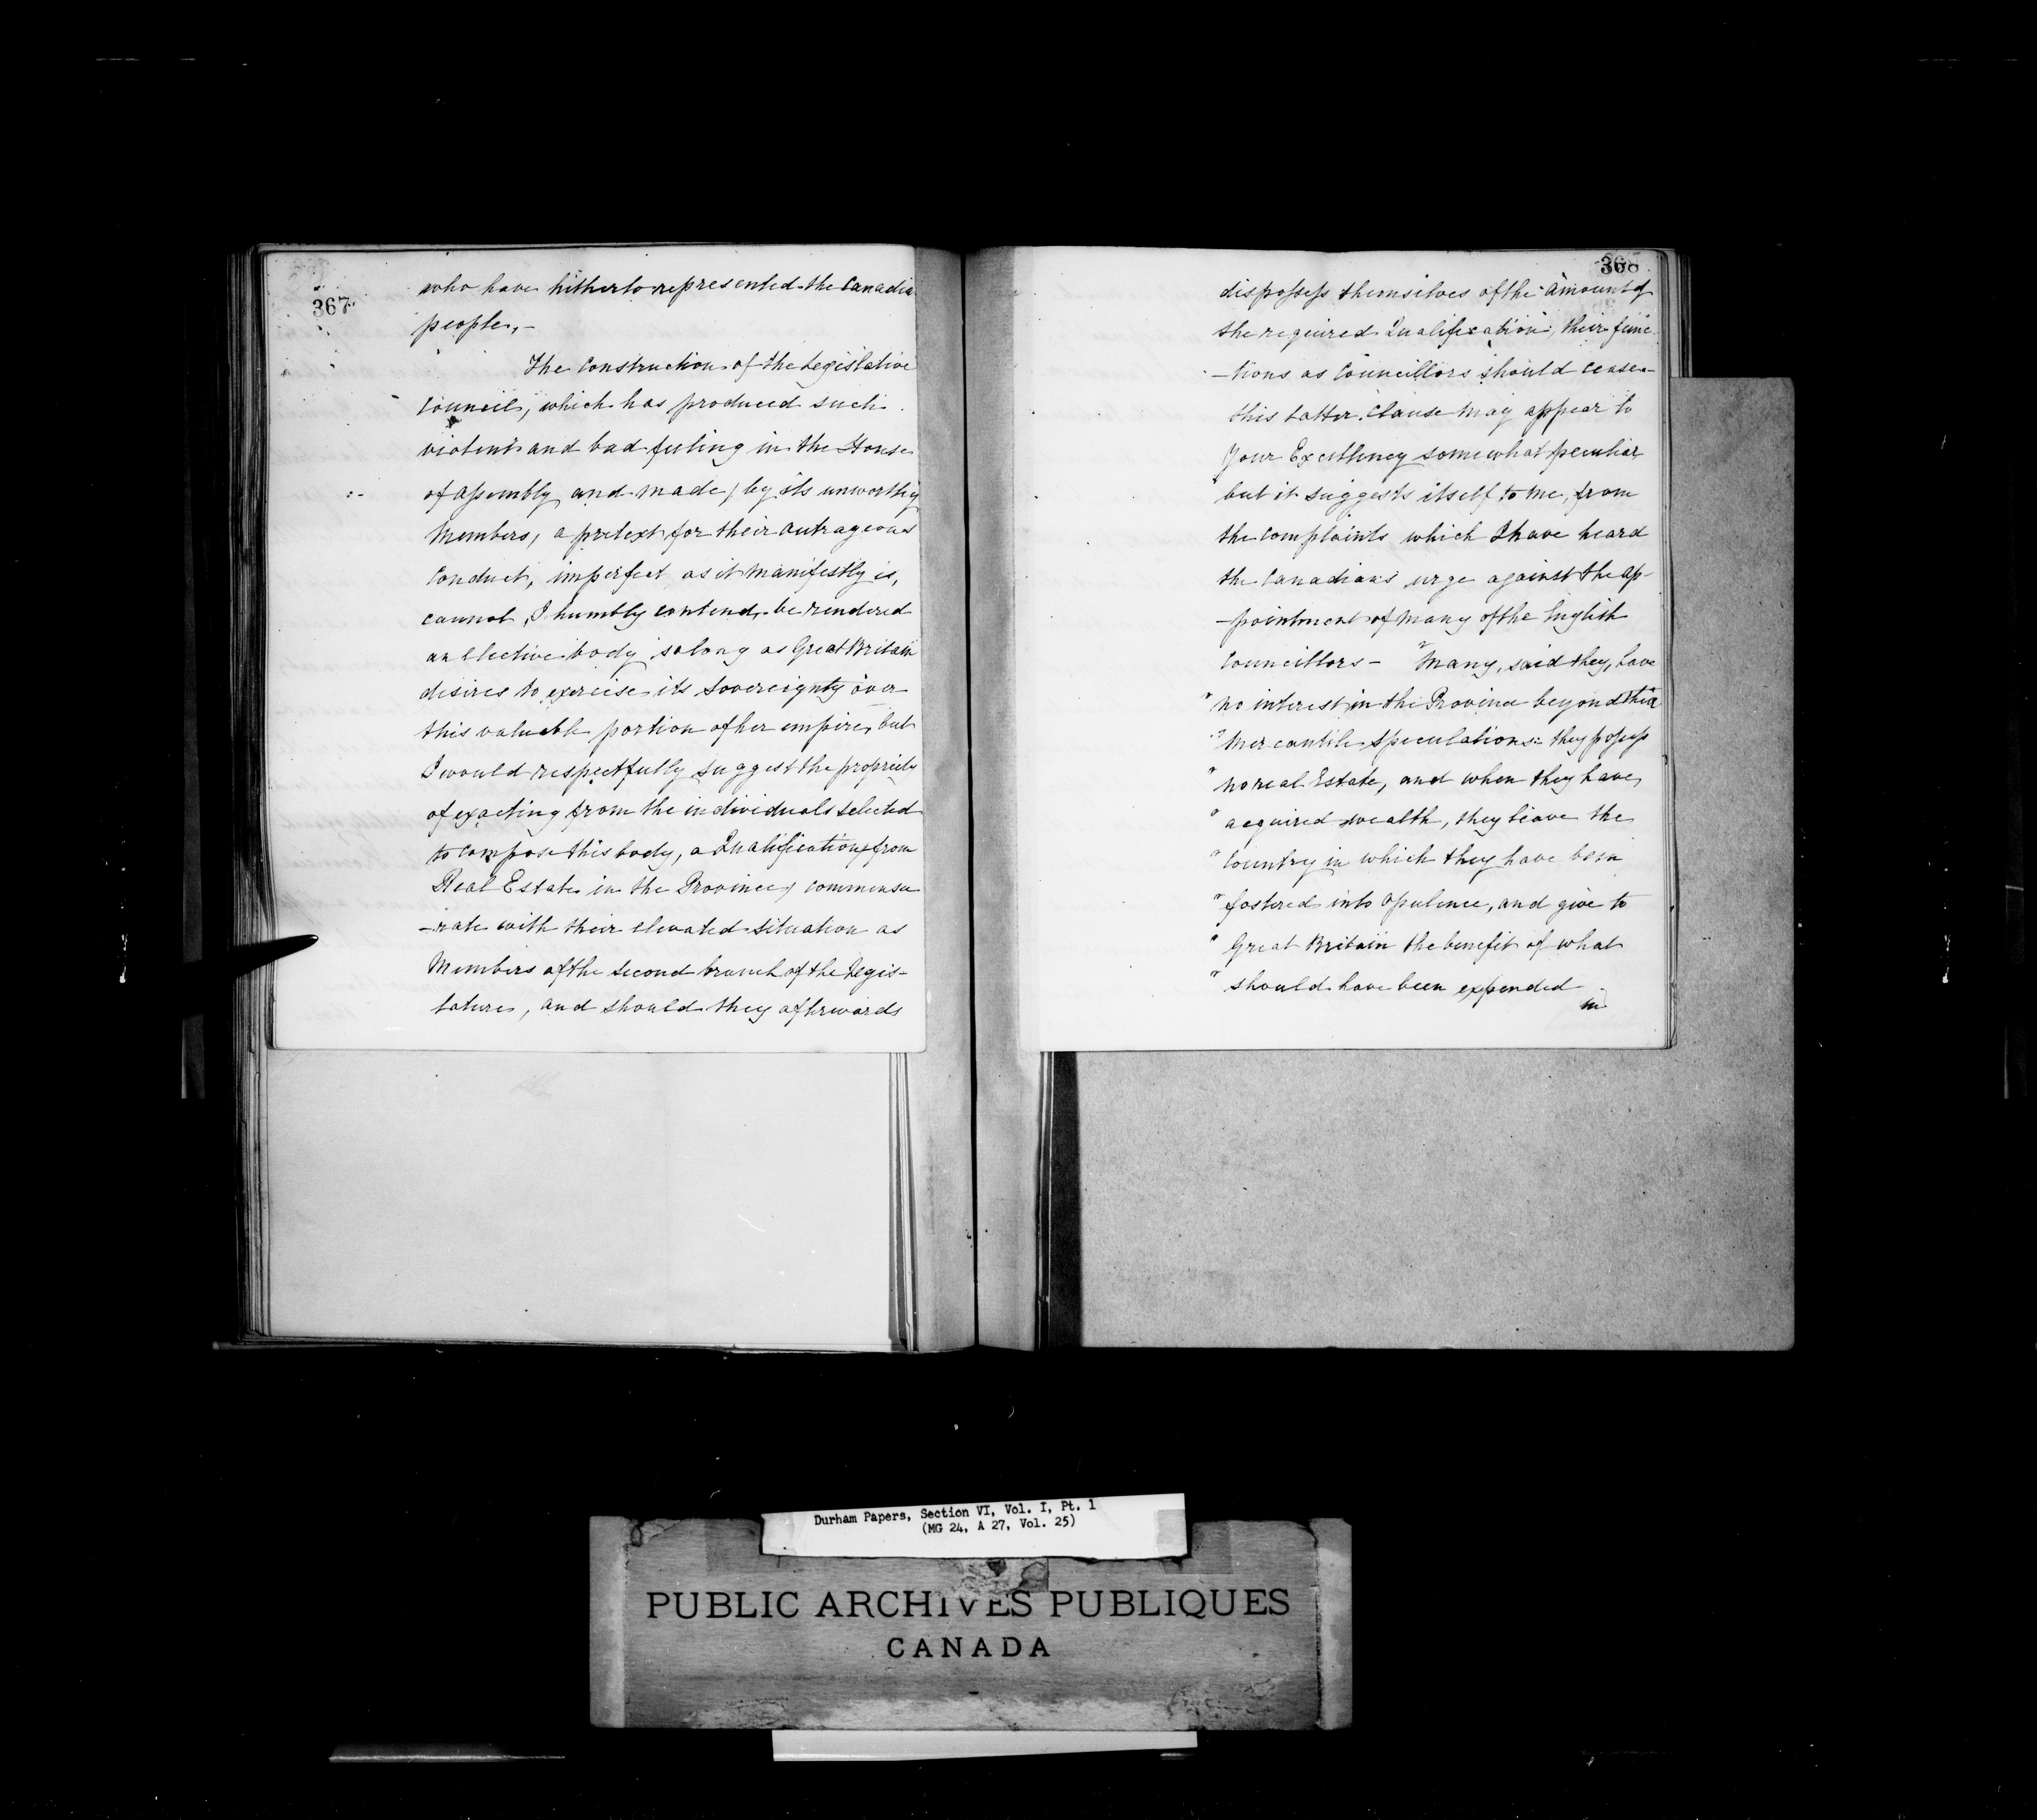 367
who have hitherto represented the Canadia
people, -
The Construction of the Legislative
Council, which has produced such
violent and bad feeling in the House
of Assembly and made, by its unworthy
Members, a pretext for their outrageous
Conduct, imperfect as it manifestly is,
cannot, I humbly contend, be rendered
an elective body, so long as Great Britain
desires to exercise its Sovereignty over
this valuable portion of her empire, but
I would respectfully suggest the propriety
of exacting from the individuals selected
to compose this body, a Qualification from
Real Estate in the Province, commensu
-rate with their elevated situation as
Members of the second branch of the Legis-
lature, and should they afterwards
368
dispossess themselves of the amount of
the required Qualification, their func
-tions as Councillors should cease-
this latter clause may appear to
Your Excellency somewhat peculiar
but it suggests itself to me, from
the complaints which I have heard
the Canadians urge against the ap-
-pointment of many of the English
Councillors - "Many, said they, have
" no interest in the Province beyond their
" Mercantile Speculations: they possess
" no real Estate, and when they have
" acquired wealth, they leave the
" Country in which they have been
" fostered into opulence, and give to
" Great Britain the benefit of what
" should have been expended
in
Durham Papers, Section VI, Vol. I, Pt. 1
(MG 24, A 27, Vol. 25)
PUBLIC ARCHIVES PUBLIQUES
CANADA